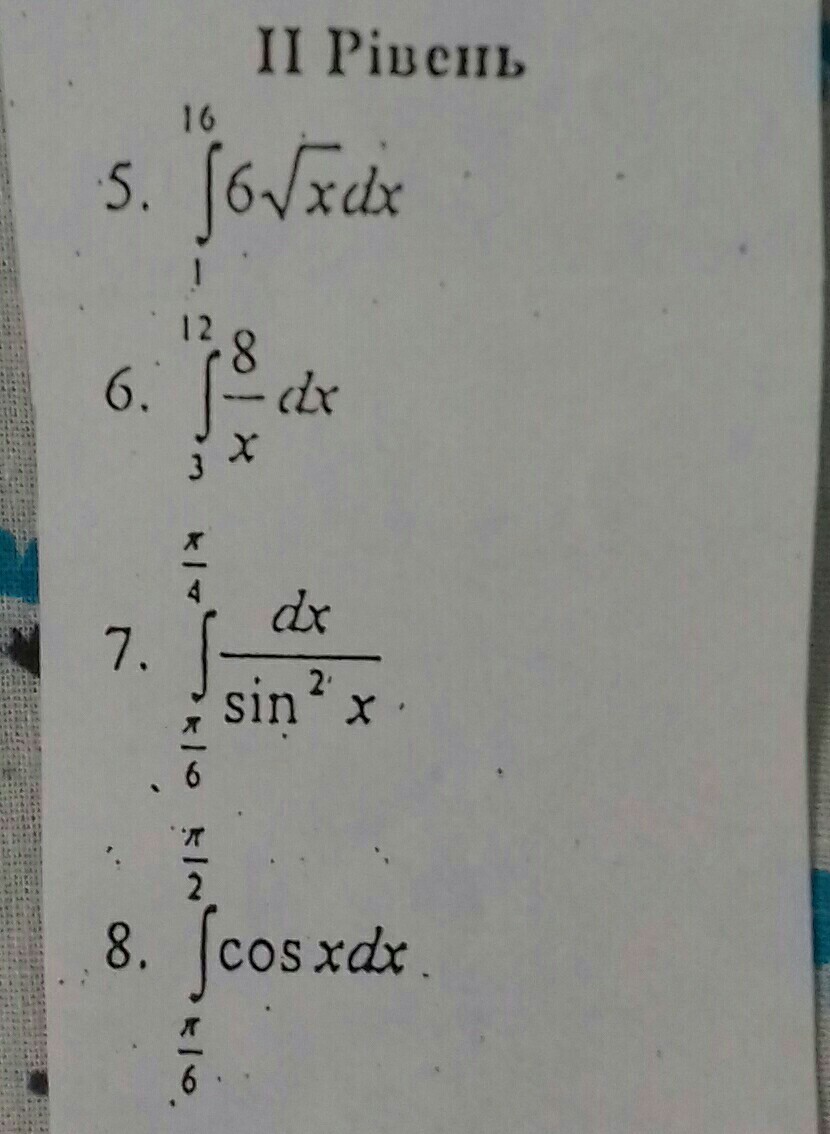 II Рівень
5. \int_{1}^{16} 6\sqrt{x}dx
6. \int_{3}^{12} \frac{8}{x} dx
7. \int_{\frac{\pi}{6}}^{\frac{\pi}{4}} \frac{dx}{\sin^2 x}
8. \int_{\frac{\pi}{6}}^{\frac{\pi}{2}} \cos xdx